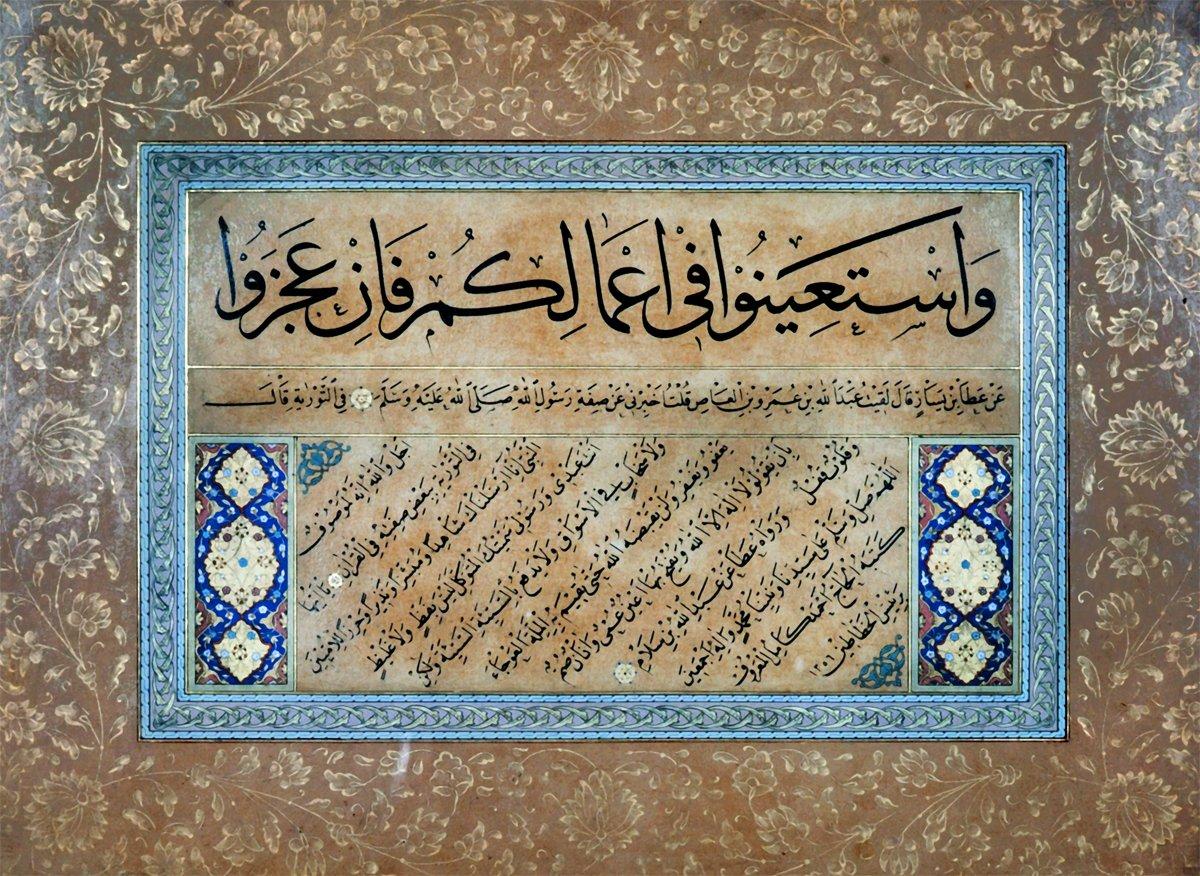 وَاسْتَعِينُوا فِي اَعْمَالِكُمْ فَاِنْ عَجَزُوا
عَنْ عَطَا بْنِ يَسَارْ قَالَ لَقِيتُ عَبْدَ اللهِ بْنِ عُمَرْو بْنِ الْعَاصِ قُلْتُ اَخْبِرْنِي عَنْ صِفَةِ رَسُولِ اللهِ صَلَّى اللهُ عَلَيْهِ وَسَلَّمْ فِي التَّوْرٰيةِ قَالَ
اجل والله انه لموصوف
في التورية ببعض صفته في القرآن يا ايها
النبي انا ارسلناك شاهدا ومبشرا ونذيرا وحرزا للاميين
انت عبدي ورسولي سميتك المتوكل ليس بفظ ولا غليظ
ولا سخاب في الاسواق ولا يدفع بالسيئة السيئة ولكن
يعفو ويغفر ولن يقبضه الله حتى يقيم به الملة العوجاء
بان يقولوا لا اله الا الله ويفتح بها اعين عمى واذان صم
وقلوب غلف ورواه عطا عن عبد الله بن سلام
اللهم صل وسلم على سيدنا ونبينا محمد واله اجمعين
كتبه الحاج احمد كامل المعروف
برئيس الخطاطين